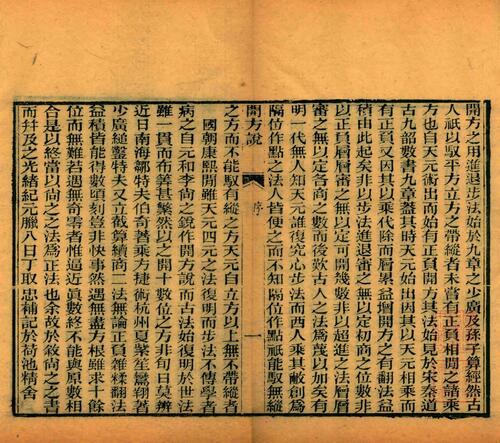 開方之用進退步法始於九章之少廣及孫子算經然古
人祇以馭平方立方之帶縱者未嘗有正負相間之諸乘
方也自天元術出而始有正負開方其法始見於宋秦道
古九韶數書九章蓋其時天元始出因其以天元相乘而
有正負又因其以乘代除而層累益增開方之有翻法益
積由此起矣非以步法進退審之無以定初商之位數非
以正負層層審之無以定可開幾數非以超進之法層層
審之無以定各商之數而後歎古人之法為蔑以加矣
明一代無人知天元誰復究心步法而西人乘其敝創為
隔位作點之法人皆便之而不知隔位作點祇能馭無縱
開方說
序
一
之方而不能馭有縱之方天元自立方以上無不帶縱者
國朝康熙間雖天元四元之法復明而步法不傳學者
病之自元和李尚之銳作開方說而古法始復明於世法
雖一貫而布算甚繁然以之開十數位之方非旬日莫辨
近日南海鄒特夫伯奇著乘方捷術杭州夏紫笙鸞翔著
少廣縋鑿特夫又立截算續商二法無論正負雜糅翻法
益積皆能得數頃刻豈非快事然遇無盡方根雖求十餘
位而無難若遇無奇零者惟逼近眞數終不能與原數相
合是以終當以尚之之法為正法也余故於敘尚之之書
而幷及之光緒紀元臘八日丁取忠補記於荷池精舍